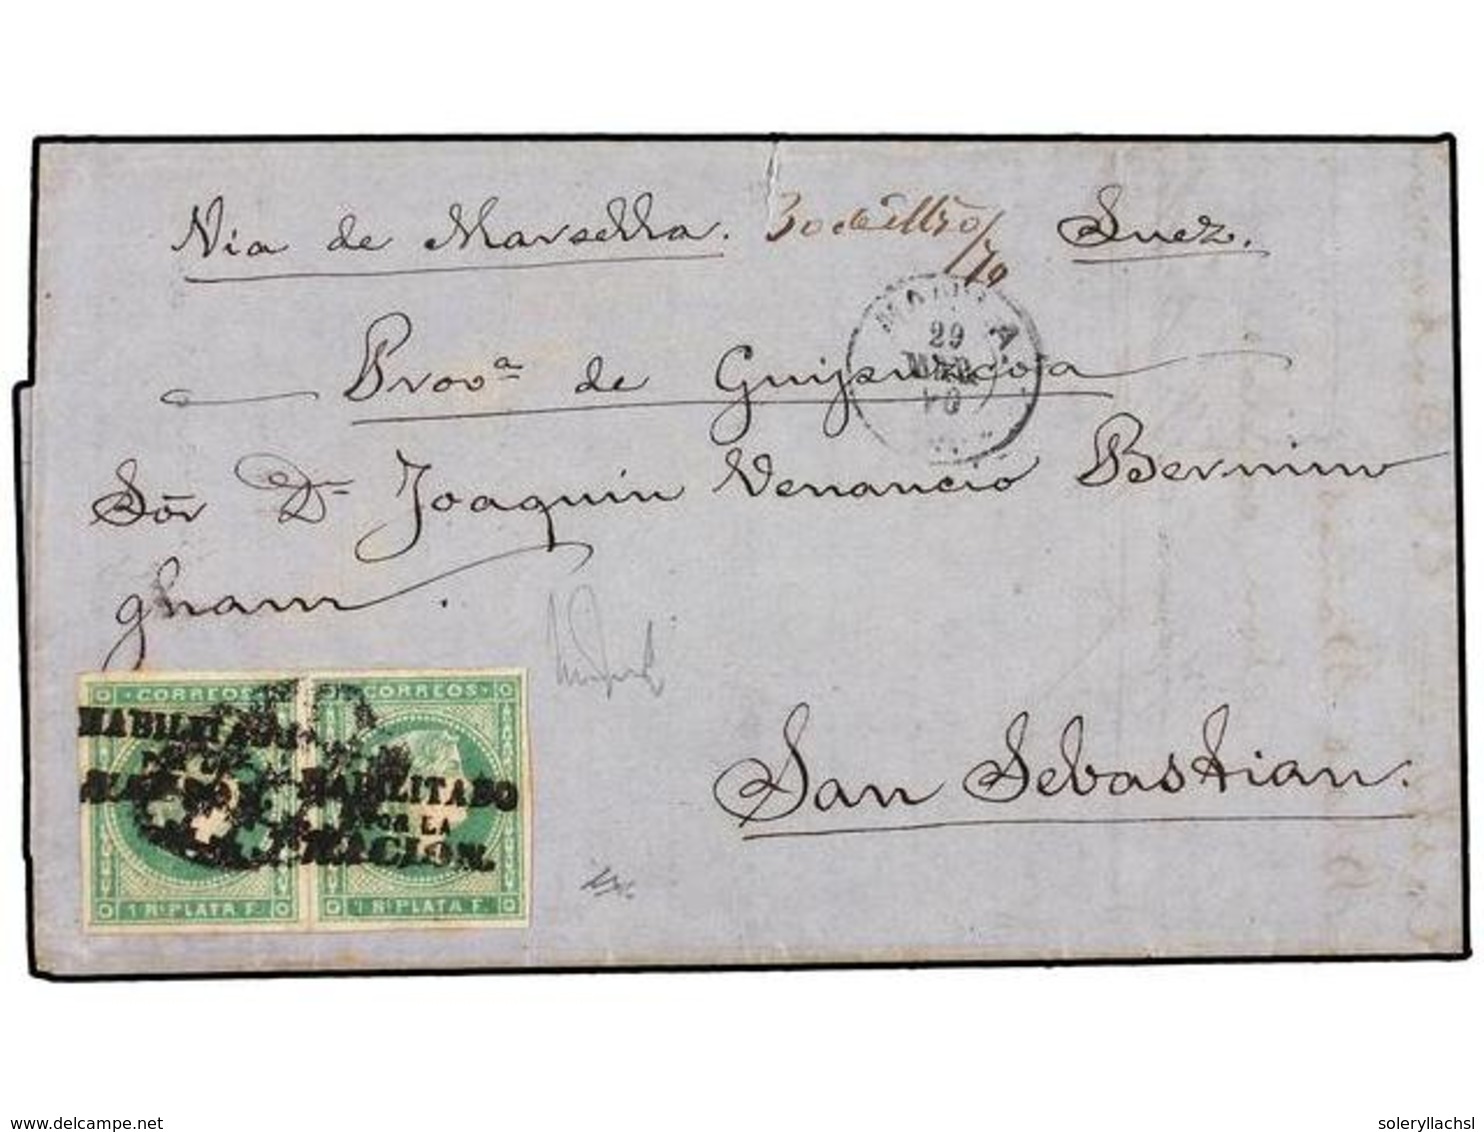 Via de Marsella. Suez.
MANILA
29
MAR
70
Provª de Guipuzcoa
Sõr Dn Joaquin Venancio Bermin
gham.
San Sebastian.
CORREOS CORREOS
HABILITADO
POR LA
NACION.
HABILITADO
POR LA
NACION.
1 Rl PLATA F. 1 Rl PLATA F.
www.delcampe.net
soleryllachsl